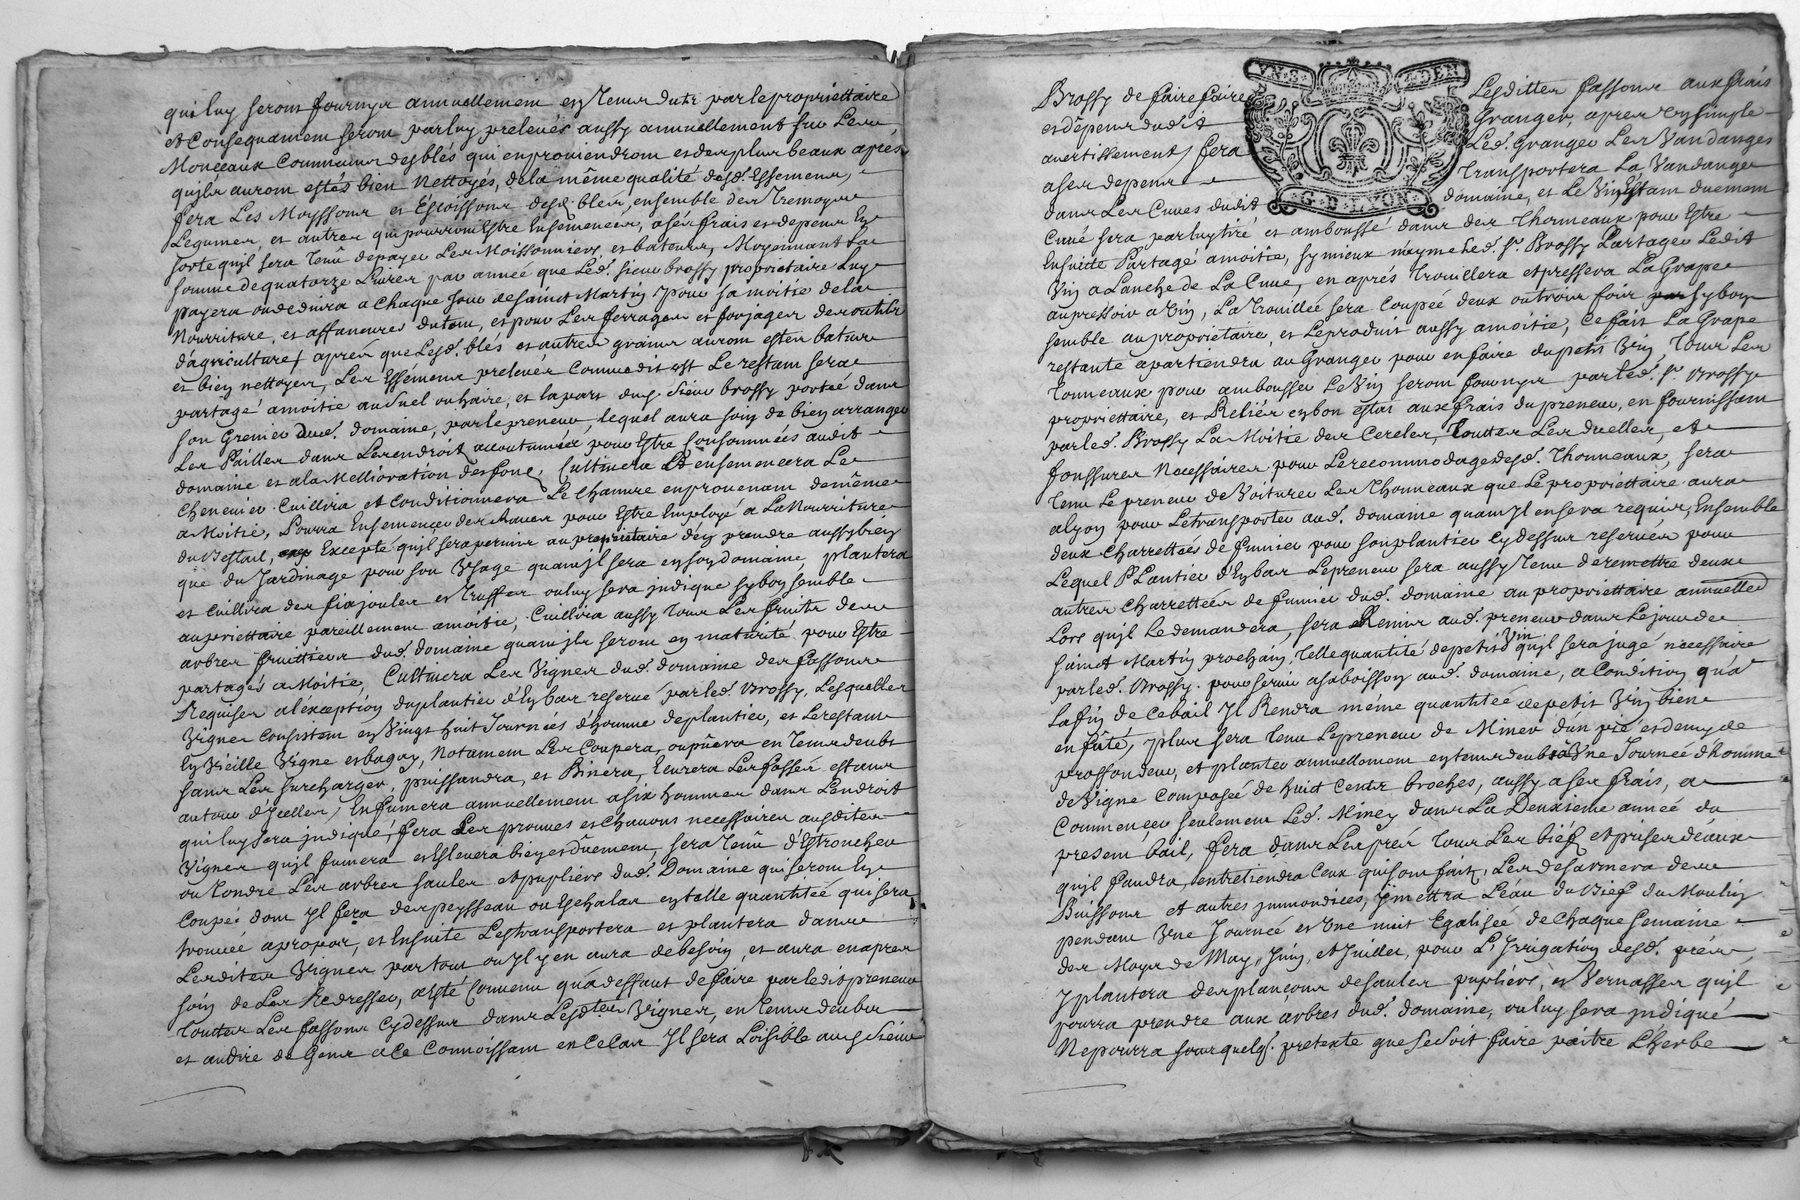 qui luy seront fournys annuellement en tems dutz par le propriettaire
et Consequament seront par luy prelevés aussy annuellement sur Les
Monceaux Communs desblés qui en proviendront et des plus beaux apres
quils auront estés bien Nettoyés, de la même qualité desd. Essemens,
fera Les Moyssons et Estoissons desd. bleds, ensemble des Tremoys
Legumes, et autres qui pourront Estre Ensemencés, a ses frais et depens En
sorte quil sera tenû de payer Les Moissonniers et bateurs, Moyennant La
somme de quatorze Livres par année que Led. sieur brossy proprietaire Luy
payera ou deduira a Chaque jour de saint Martin pour sa moitié de la
Nourriture, et affaneures du tout, et pour Les ferrages et forjages des outils
d'agriculture / aprés que Lesd. blés et autres grains auront estés batus
et bien nettoyés, Les Essémens prelevés Comme dit est Le restant sera
partagé amoitié au Suel ou haire, et la part dud. Sieur brossy portée dans
son Grenier dud. domaine, par le preneur, lequel aura soin de bien arranger
Les Pailles dans Les endroit accoutumées pour Estre Consommées audit
domaine et a la Mellioration des fond, Cultivera Et ensemencera Le
Chenevier Cuillira et Conditionnera Le Chanvre en provenant de même
a Moitié, Pourra Ensemencer des Raves pour Estre Employé a La Nourriture
du Bestail, Excepté quil sera permis au proprietaire d'en prendre aussy bien
que du Jardinage pour son Usage quant Il sera en son domaine, plantera
et Cuillira des fiajoules et truffes ou luy sera indique sy bon semble
au priettaire pareillement amoitié, Cuillira aussy tous Les fruits des
arbres fruittiers dud. domaine quant ils seront en maturité pour Estre
partagés a Moitié, Cultivera Les Vignes dud. domaine des fassons
Requises a l'exception du plantier d'En bas reservé par led. Brossy, Lesquelles
Vignes Consistent en Vingt huit Journées d'homme de plantier, et Le restant
En Vieille Vigne et bagny, Notament Les Coupera, ou pûera en tems deubt
sans Les surcharger, puissandra, et Binera, Curera Les fossés estans
autour d'Icelles, Enfumera annuellement a six hommes dans L'endroit
qui luy sera indiqué, fera Les provues et Chavons necessaires ausdites
Vignes quil fumera et Eslevera bien et duement, sera tenû d'Estroncher
ou tondre Les arbres saules et pupliers dud. Domaine qui seront En
Coupes dont Il fera des peysseau ou Eschalas en telle quantitée qui sera
trouvée apropos, et Ensuite Les transportera et plantera dans
Lesdites Vignes par tout ou Il y en aura de besoin, et aura en apres
soin de Les Redresser, a Esté Convenu qu'a deffaut de faire par ledit preneur
touttes Les fassons Cy dessus dans Lesdtes Vignes, en tems deubu
et au dire de Gens a ce Connoissant en ce Cas Il sera Loisible aud Sieur
VN·S· 4DEN
G·D·LYON
Brossy de faire faire Lesdittes fassons aux frais
et dêpens dudit Granger, apres Un simple
avertissement / fera Led. Granger Les Vandanges
a ses depens Transportera La Vandange
dans Les Cuves dudit domaine, et Le Vin Estant duement
Cuvé sera par luy tiré et amboussé dans des Thonneaux pour Estre
Ensuite Partagé amoitié, sy mieux n'ayme Led. Sr. Brossy Partager Ledit
Vin a Lanche de La Cuve, en aprés trouillera et pressera La Grape
au pressoir a Vin, La trouillée sera Coupeé deux ou trois fois sy bon
semble au proprietaire, et Le produit aussy amoitié, Ce fait La Grape
restante apartiendra au Granger pour en faire du petit Vin, tous Les
tonneaux pour ambousser Le Vin seront fournys par led. Sr. Brossy
propriettaire, et Reliés en bon estat aux frais du preneur, en fournissant
par led. Brossy La Moitié des Cercles, touttes Les duelles, et
fonssures Necessaires pour Le recommodage desd. Thonneaux, sera
tenu Le preneur de Voiturer Les Thonneaux que Le propriettaire aura
a lyon pour Les transporter aud. domaine quant Il en sera requis, Ensemble
deux Charrettées de fumier pour son plantier Cy dessus reservés pour
Lequel PLantier d'En bas Le preneur sera aussy tenu de remettre deux
autres Charrettées de fumier dud. domaine au propriettaire annuelled
Lors quil Le demandera, sera Remis aud. preneur dans Le jour de
saint Martin prochain, telle quantité de petit Vin quil sera jugé necessaire
par led. Brossy pour servir a sa boisson aud. domaine, a Condition qu'a
La fin de Ce bail Il Rendra même quantitée de petit Vin bien
en futé, plus sera tenu Le preneur de Miner d'un pié et demy de
proffondeur, et planter annuellement en tems deubt Une Journée d'homme
de Vigne Composée de huit Cents broches, aussy a ses frais, a
Commençer seulement Led. Miney dans La Deuxieme année du
present bail, fera dans Les prés tous Les bief et prises déaux
quil faudra, entretiendra Ceux qui sont faits, Les desarmera de
Buissons et autres immondices, y mettra L'eau du Bief du Moulin
pendant Une Journée et Une nuit Egalisée de Chaque semaine
des Moys de May, Juin, et Juillet, pour L'Irrigation desd. prés,
y plantera des plançons de saules pupliers, et Vernasses quil
pourra prendre aux arbres dud. domaine, ou luy sera indiqué
Ne pourra sour quelq. pretexte que Se Soit faire paitre L'herbe